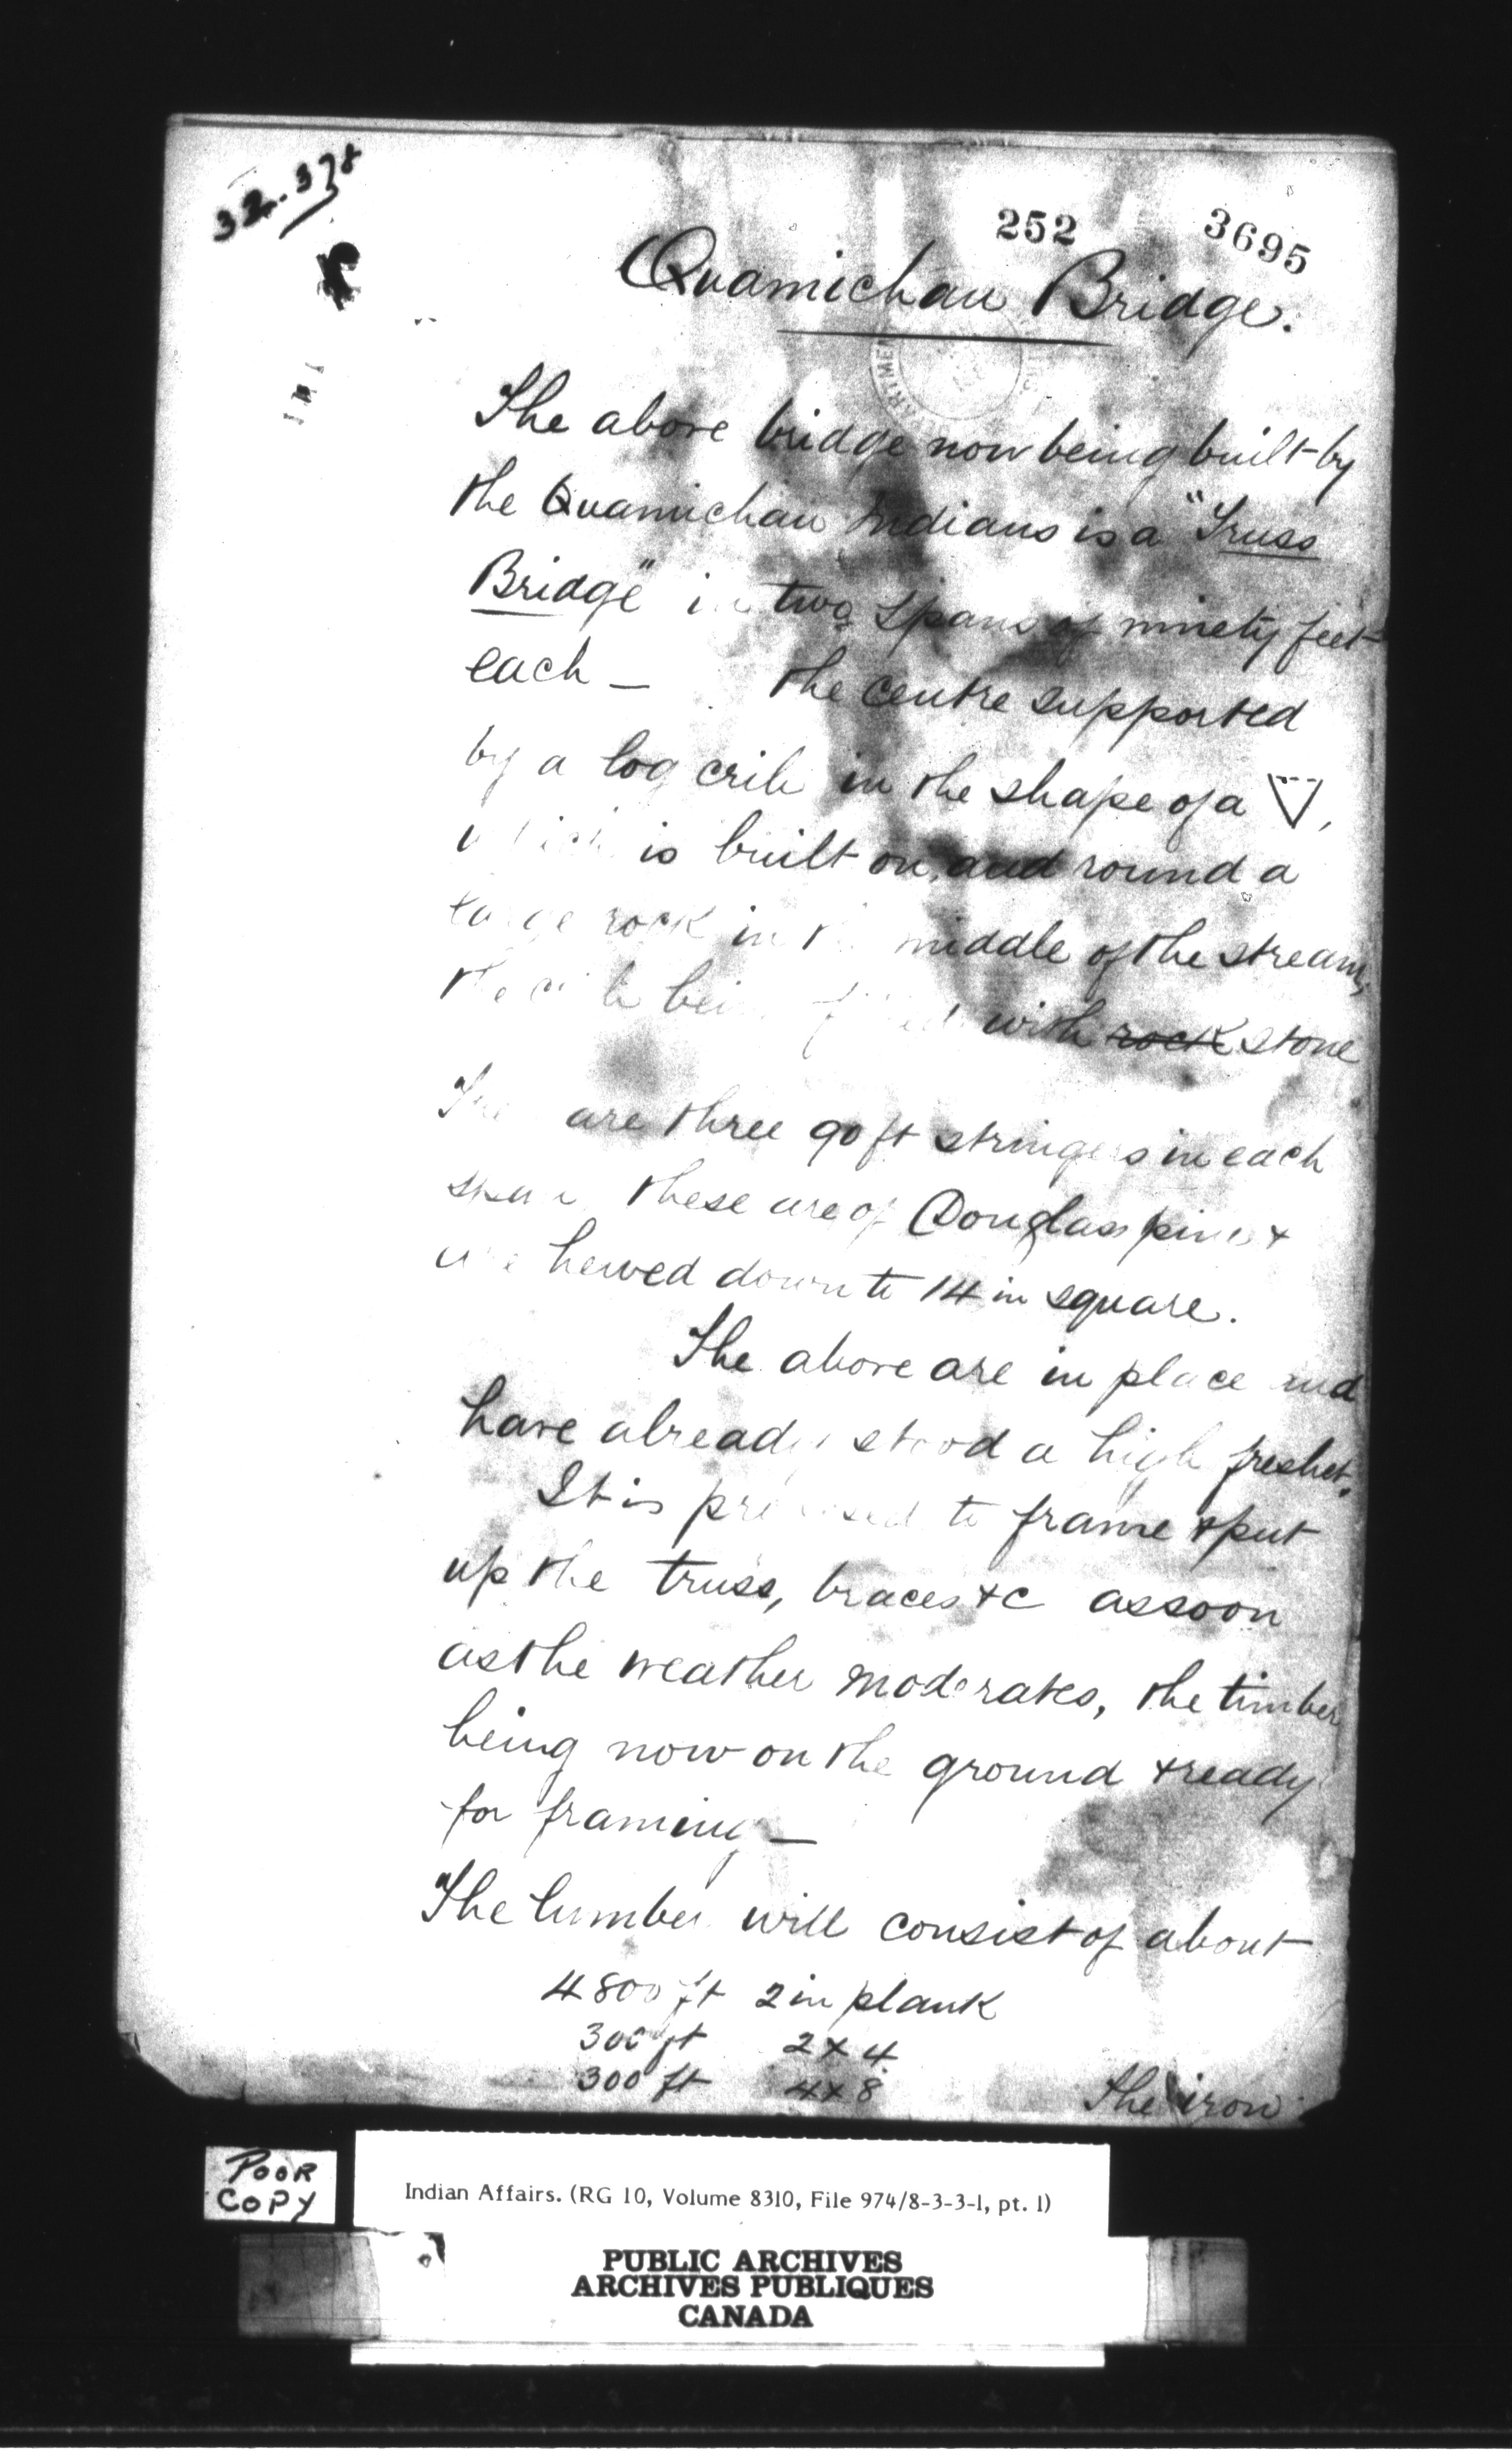 32.378
252 3695
Quamichan Bridge.
The above bridge now being built by
the Quamichan Indians is a "Truss
Bridge" in two spans of ninety feet
each — the centre supported
by a log crib in the shape of a ,
which is built on, and round a
large rock in the middle of the stream,
the crib being filled with rock stone
are three 90 ft stringers in each
span these are of Douglas pine &
are hewed down to 14 in square.
The above are in place and
have already stood a high freshet.
It is proposed to frame & put
up the truss, braces &c as soon
as the weather moderates, the timber
being now on the ground & ready
for framing —
The lumber will consist of about
4800 ft 2 in plank
300 ft 2 x 4
300 ft 4 x 8
The iron
POOR
COPY
Indian Affairs. (RG 10, Volume 8310, File 974/8-3-3-1, pt. 1)
PUBLIC ARCHIVES
ARCHIVES PUBLIQUES
CANADA